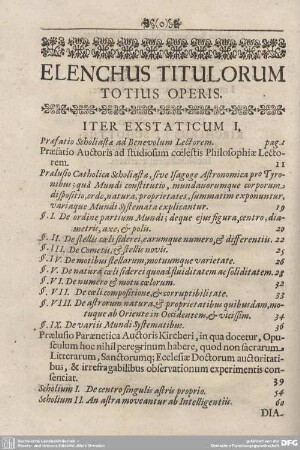 ELENCHUS TITULORUM
TOTIUS OPERIS.
ITER EXSTATICUM I.
Præfatio Scholiastæ ad Benevolum Lectorem. pag. 1
Præfatio Auctoris ad studiosum cœlestis Philosophiæ Lecto-
rem. 11
Prælusio Catholica Scholiastæ, sive Isagoge Astronomica pro Tyro-
nibus; quâ Mundi constitutio, mundanorumque corporum
dispositio, ordo, natura, proprietates, summatim exponuntur,
variaque Mundi Systemata explicantur. 19
§. I. De ordine partium Mundi; deque ejus figura, centro, dia-
metris, axe, & polis. 20
§. II. De stellis cœli sideri, earumque numero, & differentiis. 22
§. III. De Cometis, & stellis novis. 25
§. IV. De motibus stellarum, motuumque varietate. 26
§. V. De natura cœli siderei quoad fluiditatem ac soliditatem. 29
§. VI. De numero & motu cœlorum. 32
§. VII. De cœli compositione, & corruptibilitate. 33
§. VIII. De astrorum natura, & proprietatibus quibusdam, mo-
tuque ab Oriente in Occidentem, & vicissim. 34
§. IX. De variis Mundi Systematibus. 36
Prælusio Parænetica Auctoris Kircheri, in qua docetur, Opu-
sculum hoc nihil peregrinum habere, quod non sacrarum
Litterarum, Sanctorumq; Ecclesiæ Doctorum auctoritati-
bus, & irrefragabilibus observationum experimentis con-
sentiat. 39
Scholium I. De centro singulis astris proprio. 54
Scholium II. An astra moveantur ab Intelligentiis. 60
DIA-